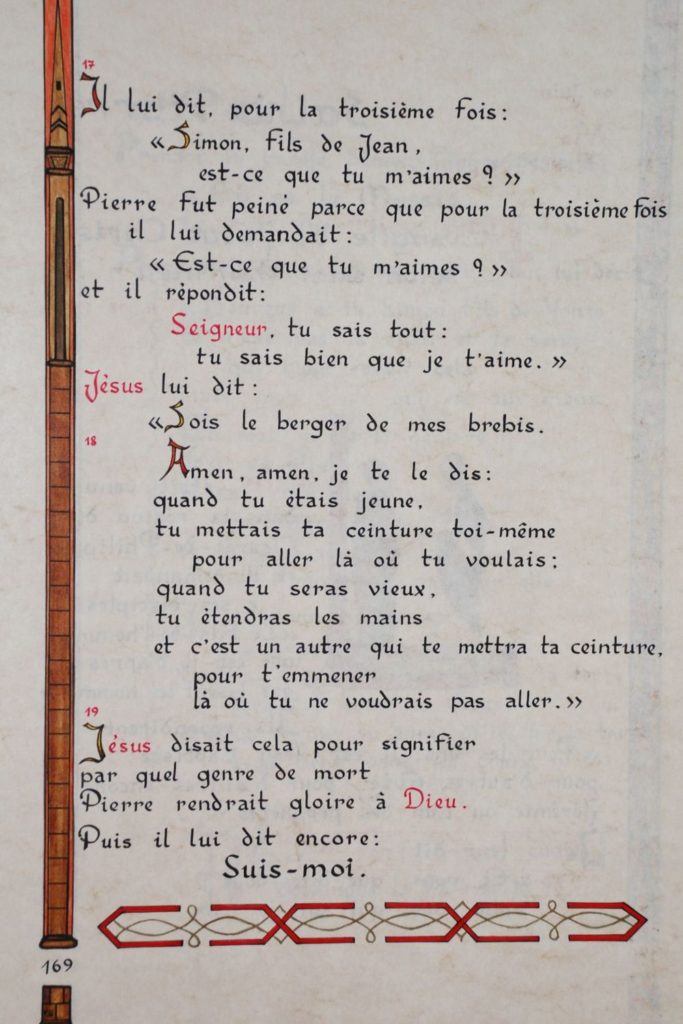 17
Il lui dit, pour la troisième fois:
«Simon, fils de Jean,
est-ce que tu m'aimes ? »
Pierre fut peiné parce que pour la troisième fois
il lui demandait:
« Est-ce que tu m'aimes ? »
et il répondit:
Seigneur, tu sais tout:
tu sais bien que je t'aime. »
Jésus lui dit:
«Sois le berger de mes brebis.
18
Amen, amen, je te le dis:
quand tu étais jeune,
tu mettais ta ceinture toi-même
pour aller là où tu voulais;
quand tu seras vieux,
tu étendras les mains
et c'est un autre qui te mettra ta ceinture,
pour t'emmener
là où tu ne voudrais pas aller.»
19
Jésus disait cela pour signifier
par quel genre de mort
Pierre rendrait gloire à Dieu.
Puis il lui dit encore:
Suis-moi.
169